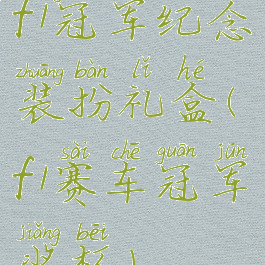 f1冠军纪念
zhuāng bàn lǐ hé
装扮礼盒(
sài chē guān jūn
f1赛车冠军
jiǎng bēi
奖杯)